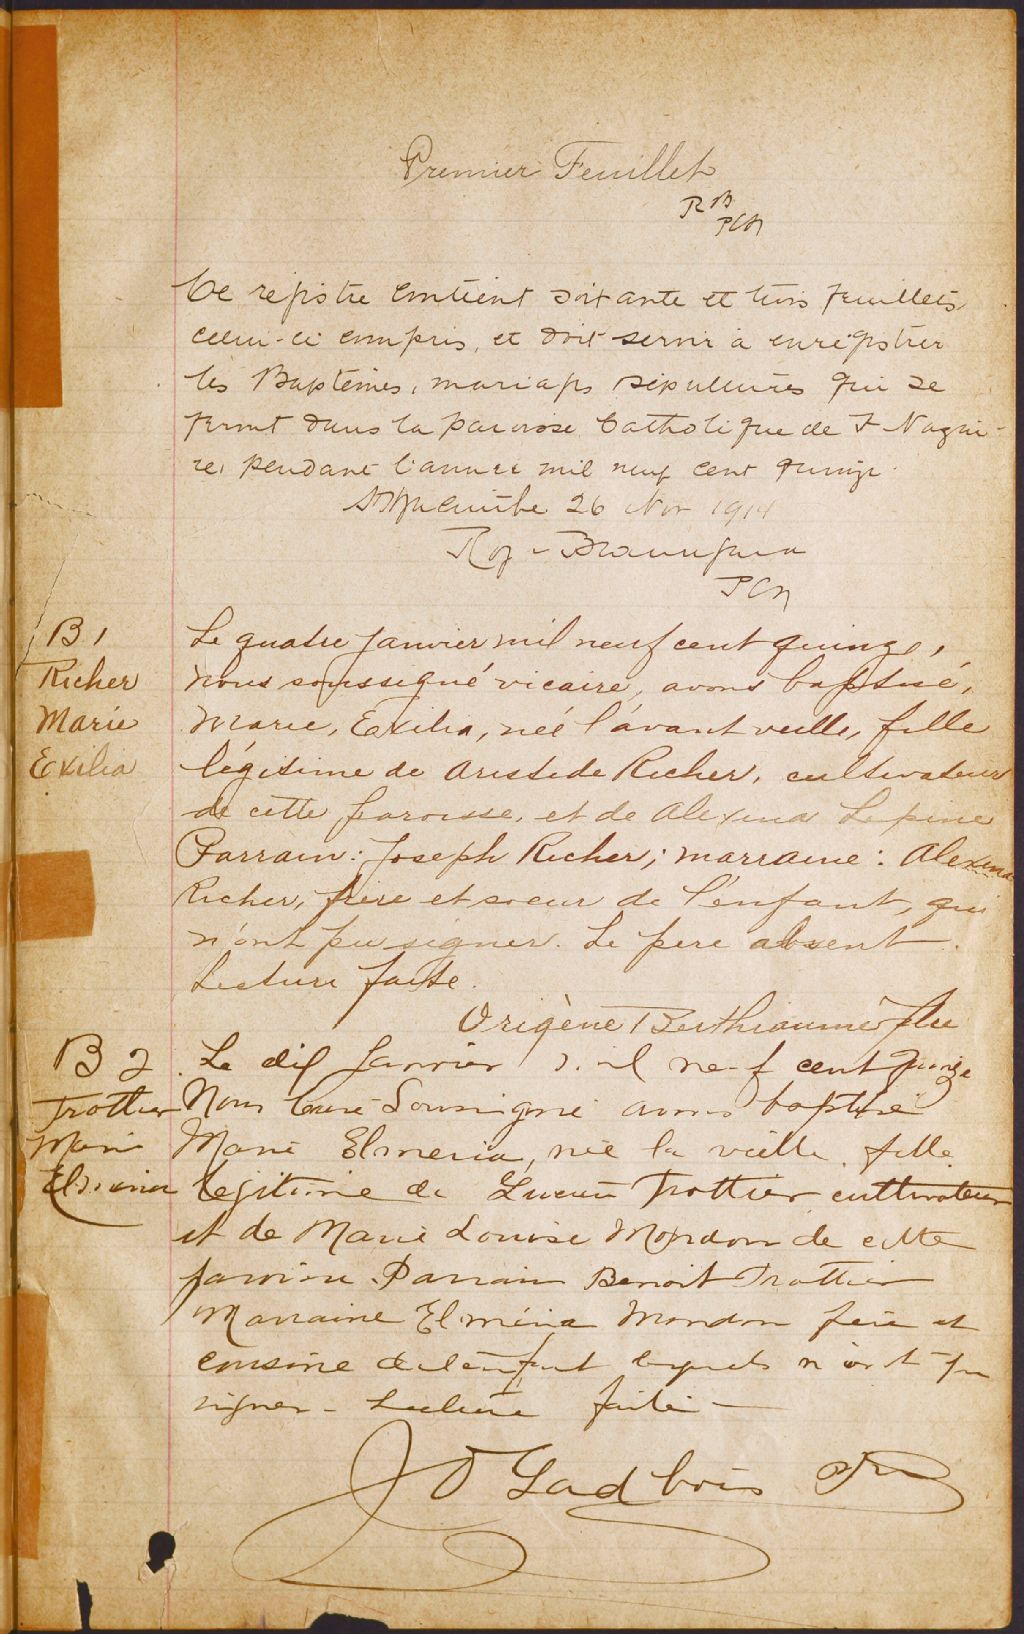 Premier Feuillet
RB
PCS
Ce registre contient soixante et trois feuillets
celui-ci compris, et doit servir à enregistrer
les Baptêmes, mariages sépultures qui se
feront dans la paroisse Catholique de St Nazai-
re, pendant l'année mil neuf cent quinze
St Hyacinthe 26 Nov 1914
Roy - Beauregard
PCS
B 1
Richer
Marie
Exilia
Le quatre janvier mil neuf cent quinze,
nous soussigné vicaire, avons baptisé,
Marie, Exilia, née l'avant veille, fille
légitime de Aristide Richer, cultivateur
de cette paroisse, et de Alexina Lepine
Parrain: Joseph Richer; marraine: Alexina
Richer, frère et soeur de l'enfant, qui
n'ont pu signer. Le père absent.
Lecture faite.
Origène Berthiaume ptre
B 2
Trottier
Marie
Elmeria
Le dix Janvier mil neuf cent quinze
Nous Curé Soussigné avons baptisé
Marie Elmeria, née la veille, fille
legitime de Lucien Trottier cultivateur
et de Marie Louise Mondon de cette
paroisse. Parrain Benoit Trottier
Marraine Elméria Mondon frère et
cousine de l'enfant lesquels n'ont pu
signer - Lecture faite -
J O Gadbois Ptre